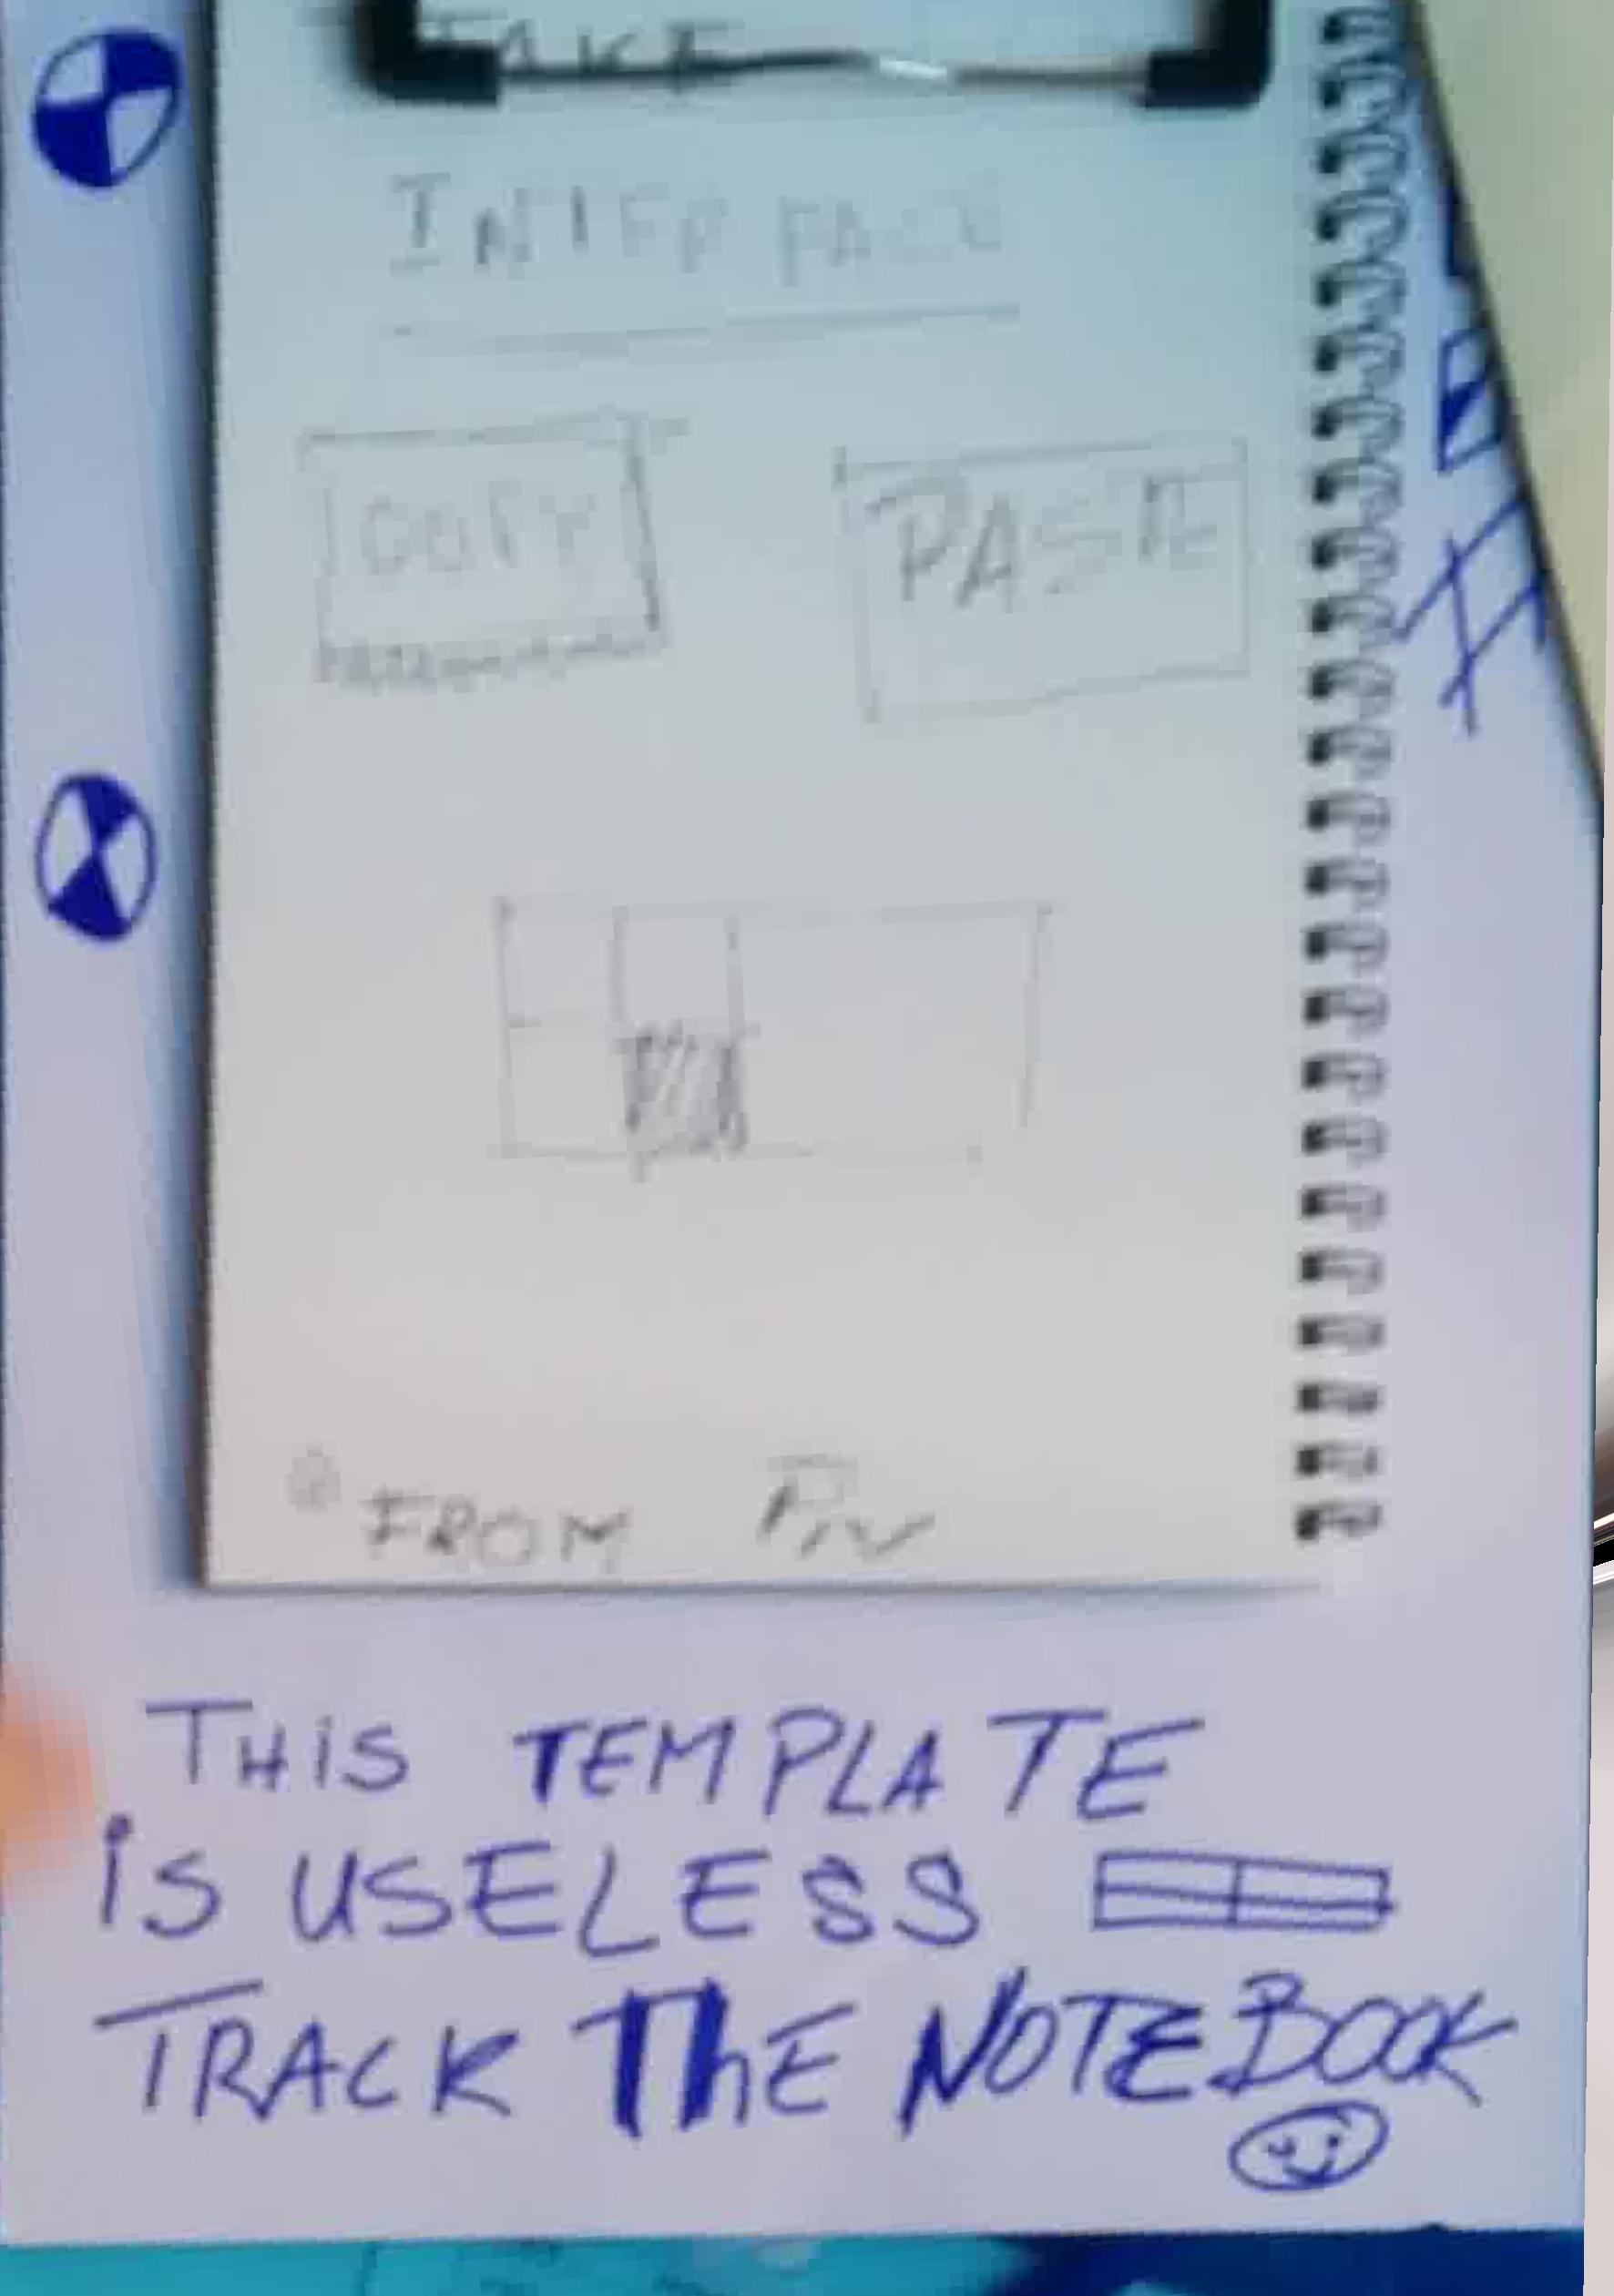 INTERFACE
COPY
PASTE
FROM
THiS TEMPLATE
iS USELESS
TRACK ThE NOTEBOOK